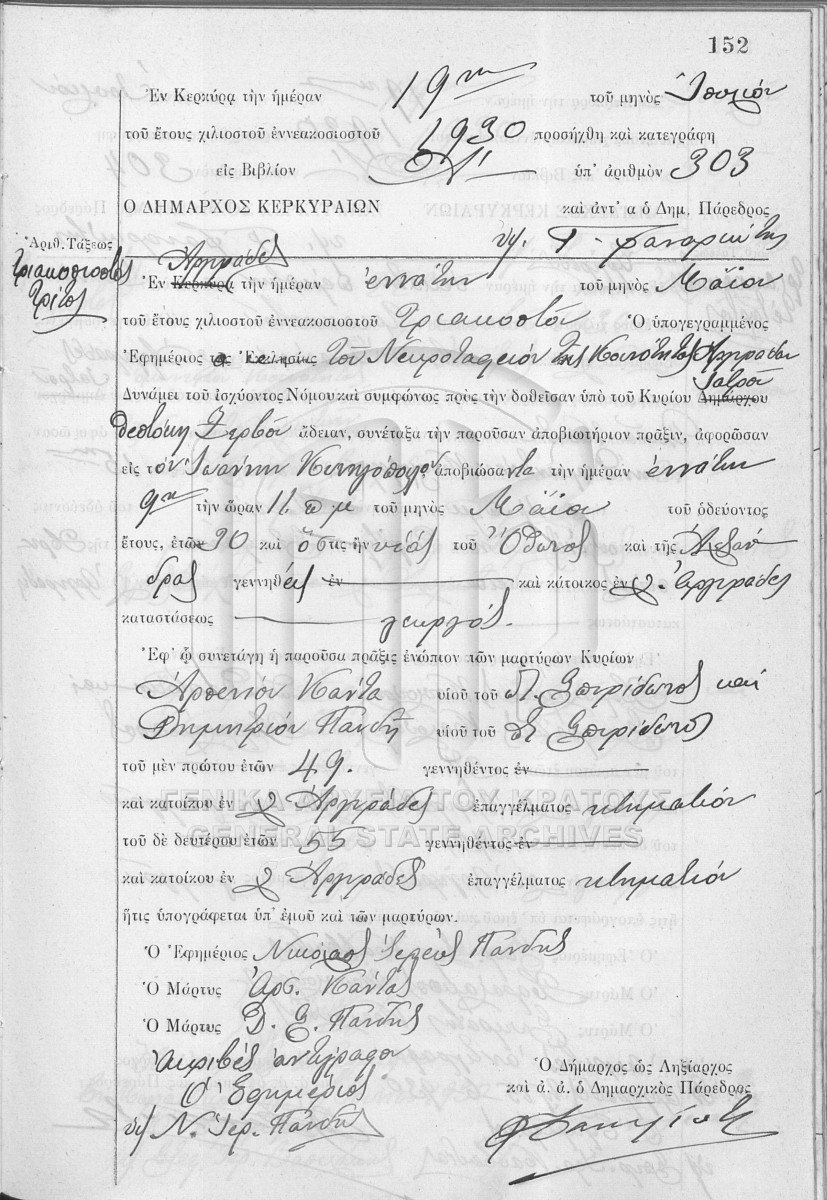 152
Ἐν Κερκύρᾳ τὴν ἡμέραν 19ην τοῦ μηνὸς Ἰουλίου
τοῦ ἔτους χιλιοστοῦ ἐννεακοσιοστοῦ 1930 προσήχθη καὶ κατεγράφη
εἰς Βιβλίον ὑπ' ἀριθμὸν 303
Ὁ ΔΗΜΑΡΧΟΣ ΚΕΡΚΥΡΑΙΩΝ καὶ ἀντ' α ὁ Δημ. Πάρεδρος
Ἀριθ. Τάξεως
Τριακοσιοστὸς
τρίτος
Ἀργυράδες
Ἐν Κερκύρᾳ τὴν ἡμέραν ἐννάτην τοῦ μηνὸς Μαΐου
τοῦ ἔτους χιλιοστοῦ ἐννεακοσιοστοῦ τριακοστοῦ Ὁ ὑπογεγραμμένος
Ἐφημέριος τῆς Ἐκκλησίας τοῦ Νεκροταφείου τῆς Κοινότητος Ἀργυράδων
Ἰατροῦ
Δυνάμει τοῦ ἰσχύοντος Νόμου καὶ συμφώνως πρὸς τὴν δοθεῖσαν ὑπὸ τοῦ Κυρίου Δημάρχου
Ζερβοῦ ἄδειαν, συνέταξα τὴν παροῦσαν ἀποβιωτήριον πρᾶξιν, ἀφορῶσαν
εἰς τὸν Ἰωάννην ἀποβιώσαντα τὴν ἡμέραν ἐννάτην
9ην τὴν ὥραν 11 π μ τοῦ μηνὸς Μαΐου τοῦ ὁδεύοντος
ἔτους, ἐτῶν 90 καὶ ὅστις ἦν υἱὸς τοῦ Ὄθωνος καὶ τῆς Ἀλεξάν
δρας γεννηθεὶς ἐν καὶ κάτοικος ἐν Ἀργυράδες
καταστάσεως γεωργός.
Ἐφ' ᾧ συνετάγη ἡ παροῦσα πρᾶξις ἐνώπιον τῶν μαρτύρων Κυρίων
Ἀρσενίου Κάντα υἱοῦ τοῦ Π. Σπυρίδωνος καὶ
Δημητρίου Πανδῆ υἱοῦ τοῦ Σπυρίδωνος
τοῦ μὲν πρώτου ἐτῶν 49. γεννηθέντος ἐν
καὶ κατοίκου ἐν Ἀργυράδες ἐπαγγέλματος κτηματίου
τοῦ δὲ δευτέρου ἐτῶν 55 γεννηθέντος ἐν
καὶ κατοίκου ἐν Ἀργυράδες ἐπαγγέλματος κτηματίου
ἥτις ὑπογράφεται ὑπ' ἐμοῦ καὶ τῶν μαρτύρων.
Ὁ Ἐφημέριος Νικόλαος Ἱερεὺς Πανδῆς
Ὁ Μάρτυς Ἀρσ. Κάντας
Ὁ Μάρτυς Δ. Σ. Πανδῆς
Ἀκριβὲς ἀντίγραφον
Ὁ Ἐφημέριος
υγ/ Ν. Ἱερ. Πανδῆς
Ὁ Δήμαρχος ὡς Ληξίαρχος
καὶ ἀ. ἀ. ὁ Δημαρχικὸς Πάρεδρος
ΓΕΝΙΚΑ ΑΡΧΕΙΑ ΤΟΥ ΚΡΑΤΟΥΣ
GENERAL STATE ARCHIVES